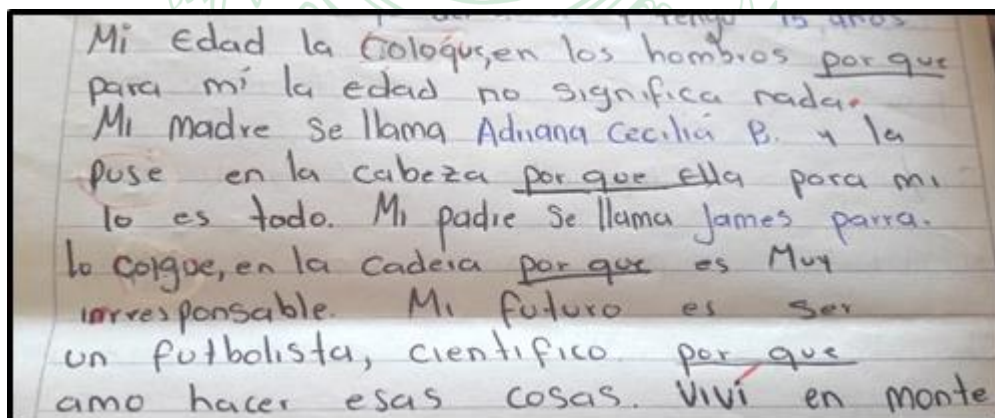 y tengo 15 años
Mi Edad la Coloque, en los hombros por que
para mi la edad no significa nada.
Mi madre se llama Adriana Cecilia B. y la
puse en la cabeza por que Ella para mi
lo es todo. Mi padre se llama James parra.
lo colgue, en la cadera por que es Muy
irresponsable. Mi futuro es ser
un futbolista, cientifico por que
amo hacer esas cosas. Viví en monte